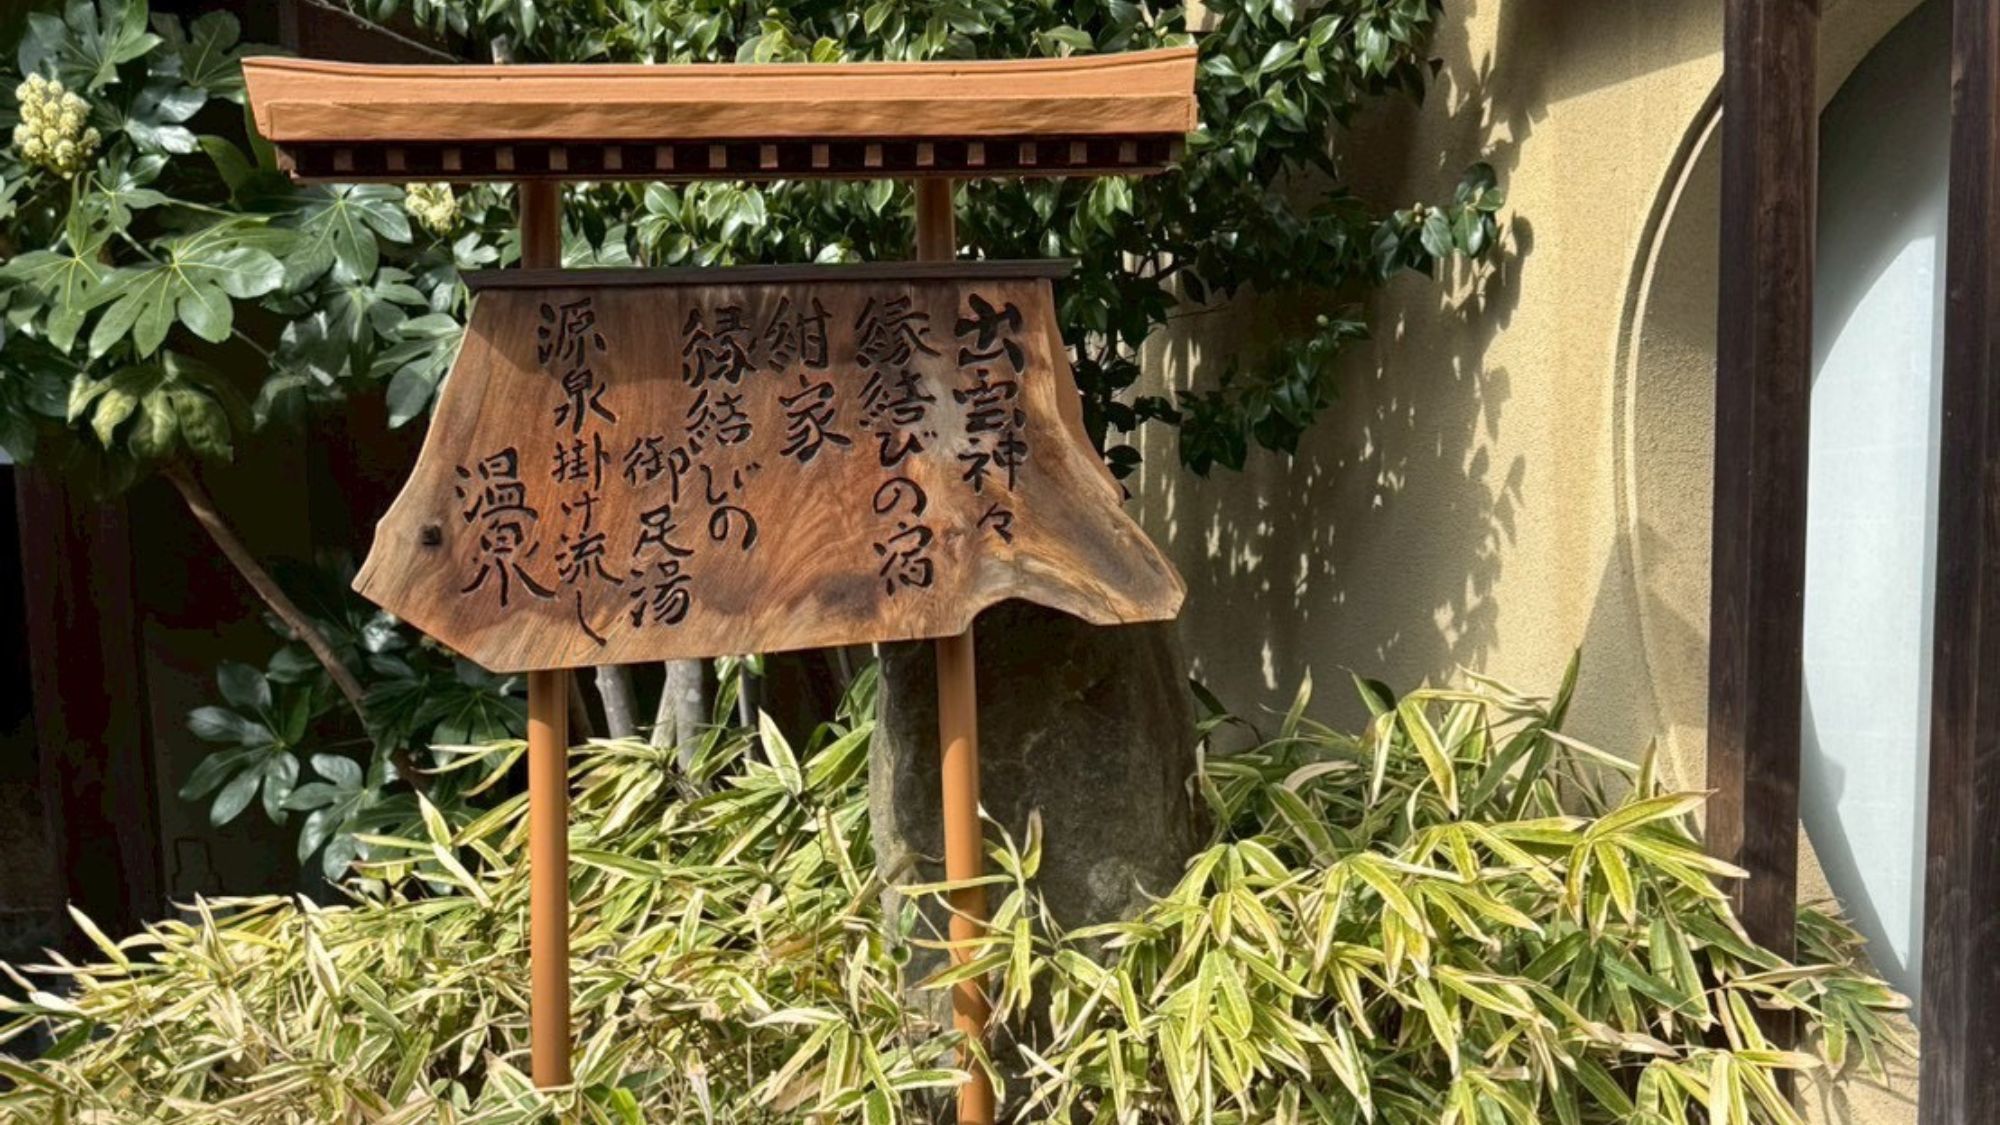 出雲神々
縁結びの宿
紺家
縁結びの
御足湯
源泉掛け流し
温泉